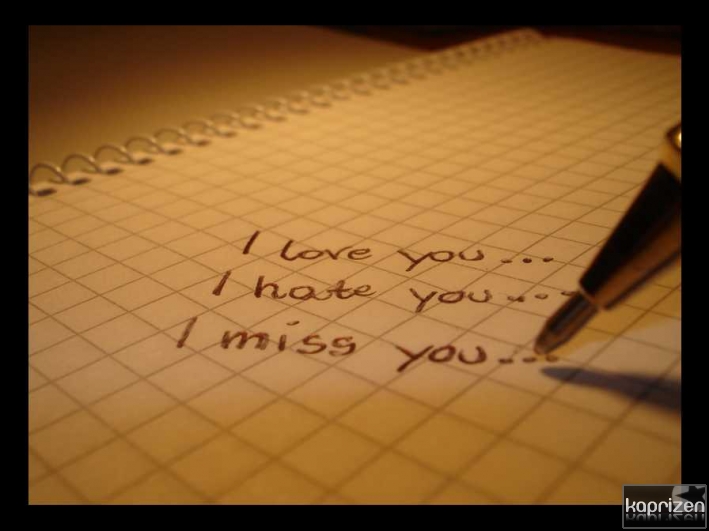 I love you...
I hate you...
I miss you...
kaprizen